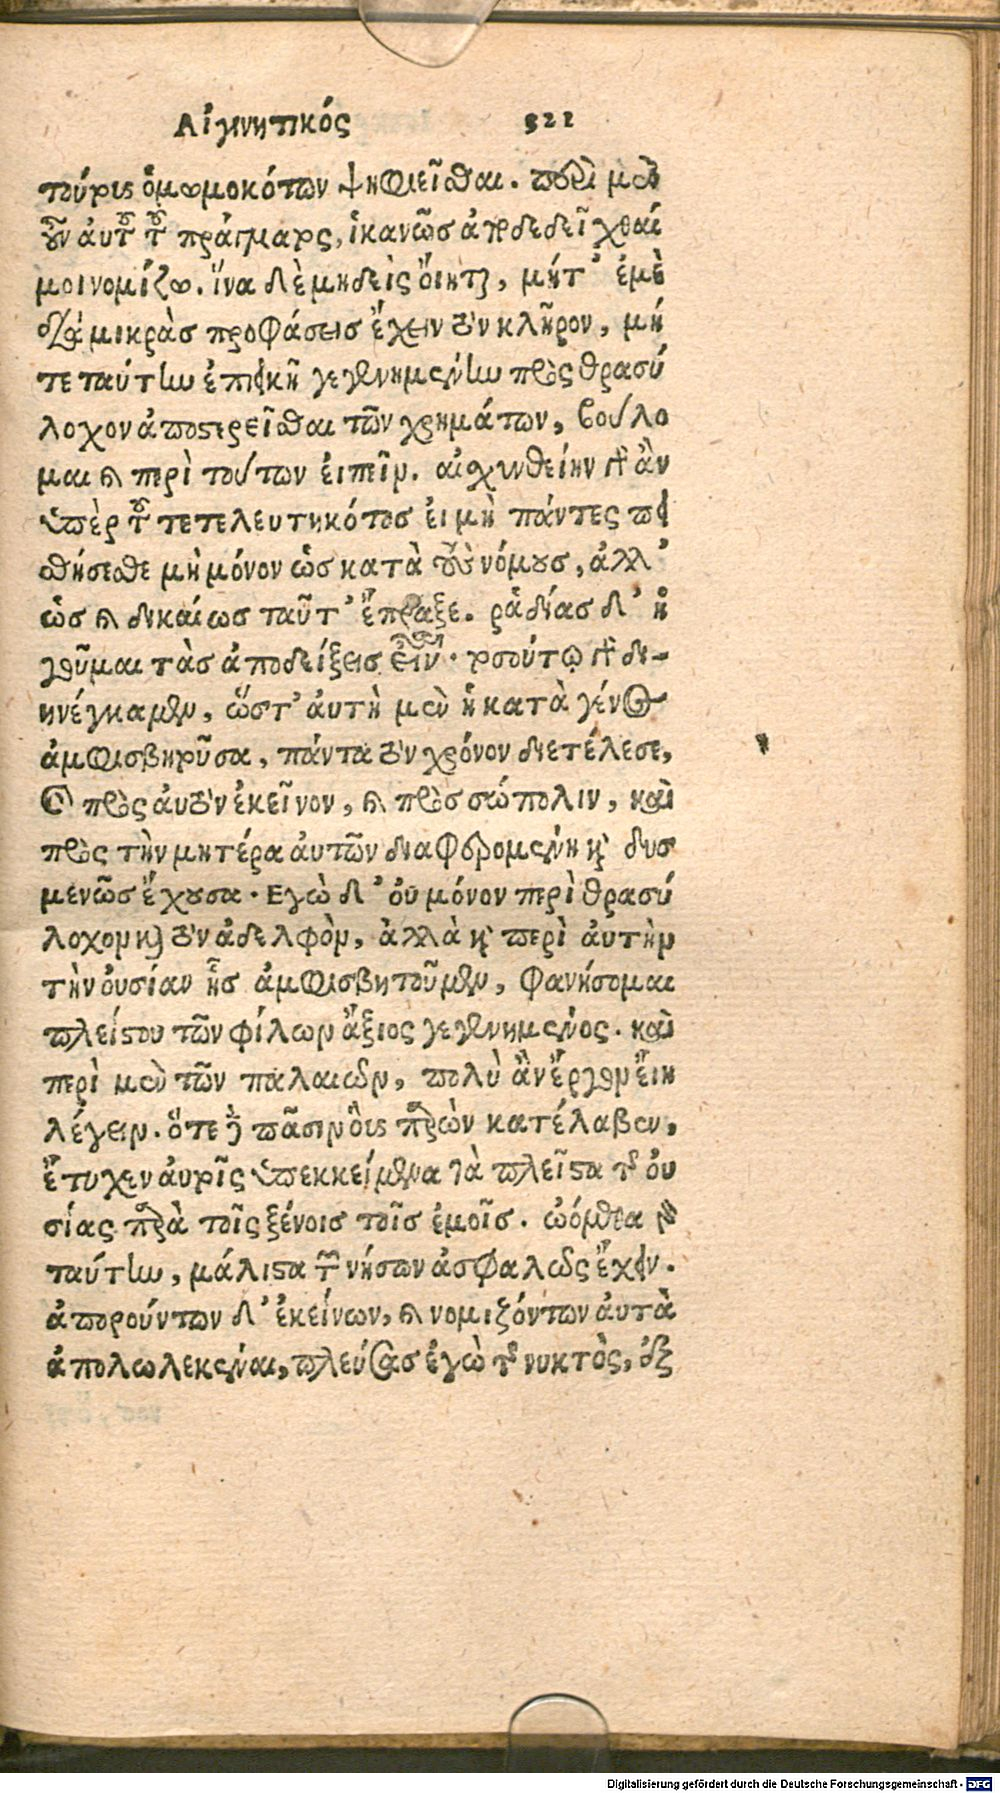 Αἰγινητικός 321
τούτοις ὀμωμοκότων ψηφιεῖσθαι. περὶ μὲν
οὖν αὐτοῦ τοῦ πράγματος, ἱκανῶς ἀποδεδεῖχθαί
μοι νομίζω. ἵνα δὲ μηδεὶς οἴηται, μήτ' ἐμὲ
διὰ μικρὰς προφάσεις ἔχειν τὸν κλῆρον, μή
τε ταύτην ἐπιεικῆ γεγενημένην πρὸς θρασύ
λοχον ἀποστερεῖσθαι τῶν χρημάτων, βούλο
μαι καὶ περὶ τούτων εἰπεῖν. αἰσχυνθείην γὰρ ἂν
ὑπὲρ τοῦ τετελευτηκότος εἰ μὴ πάντες πει
σθήσεσθε μὴ μόνον ὡς κατὰ τοὺς νόμους, ἀλλ'
ὡς καὶ δικαίως ταῦτ' ἔπραξε. ῥᾳδίας δ' ἡ
γοῦμαι τὰς ἀποδείξεις εἶναι. τοσούτῳ γὰρ δι-
ηνέγκαμεν, ὥστ' αὐτὴ μὲν ἡ κατὰ γένος
ἀμφισβητοῦσα, πάντα τὸν χρόνον διετέλεσε,
καὶ πρὸς αὐτὸν ἐκεῖνον, καὶ πρὸς σώπολιν, καὶ
πρὸς τὴν μητέρα αὐτῶν διαφερομένη καὶ δυσ
μενῶς ἔχουσα. Εγὼ δ' οὐ μόνον περὶ θρασύ
λοχον καὶ τὸν ἀδελφὸν, ἀλλὰ καὶ περὶ αὐτὴν
τὴν οὐσίαν ἧς ἀμφισβητοῦμεν, φανήσομαι
πλείστου τῶν φίλων ἄξιος γεγενημένος. καὶ
περὶ μὲν τῶν παλαιῶν, πολὺ ἂν ἔργον εἴη
λέγειν. ὅτε δὲ πᾶσιν οἷς παρὼν κατέλαβεν,
ἔτυχεν αὐτοῖς ὑπεκκείμενα τὰ πλεῖστα τῆς οὐ
σίας παρὰ τοῖς ξένοις τοῖς ἐμοῖς. ᾠόμεθα γὰρ
ταύτην, μάλιστα τῶν νήσων ἀσφαλῶς ἔχειν.
ἀπορούντων δ' ἐκείνων, καὶ νομιζόντων αὐτὰ
ἀπολωλεκέναι, πλεύσας ἐγὼ τῆς νυκτὸς, ἐξ
Digitalisierung gefördert durch die Deutsche Forschungsgemeinschaft - DFG